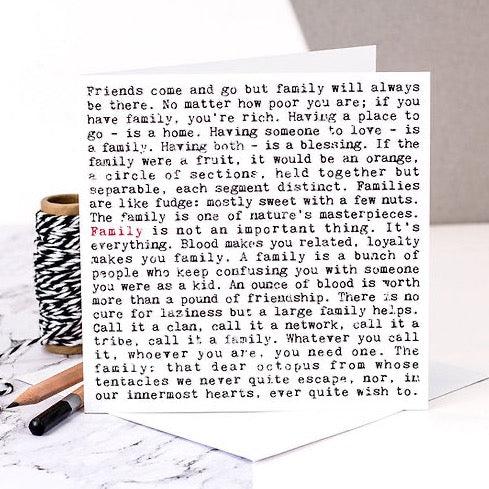 Friends come and go but family will always
be there. No matter how poor you are; if you
have family, you're rich. Having a place to
go - is a home. Having someone to love - is
a family. Having both - is a blessing. If the
family were a fruit, it would be an orange,
a circle of sections, held together but
separable, each segment distinct. Families
are like fudge: mostly sweet with a few nuts.
The family is one of nature's masterpieces.
Family is not an important thing. It's
everything. Blood makes you related, loyalty
makes you family. A family is a bunch of
people who keep confusing you with someone
you were as a kid. An ounce of blood is worth
more than a pound of friendship. There is no
cure for laziness but a large family helps.
Call it a clan, call it a network, call it a
tribe, call it a family. Whatever you call
it, whoever you are, you need one. The
family: that dear octopus from whose
tentacles we never quite escape, nor, in
our innermost hearts, ever quite wish to.